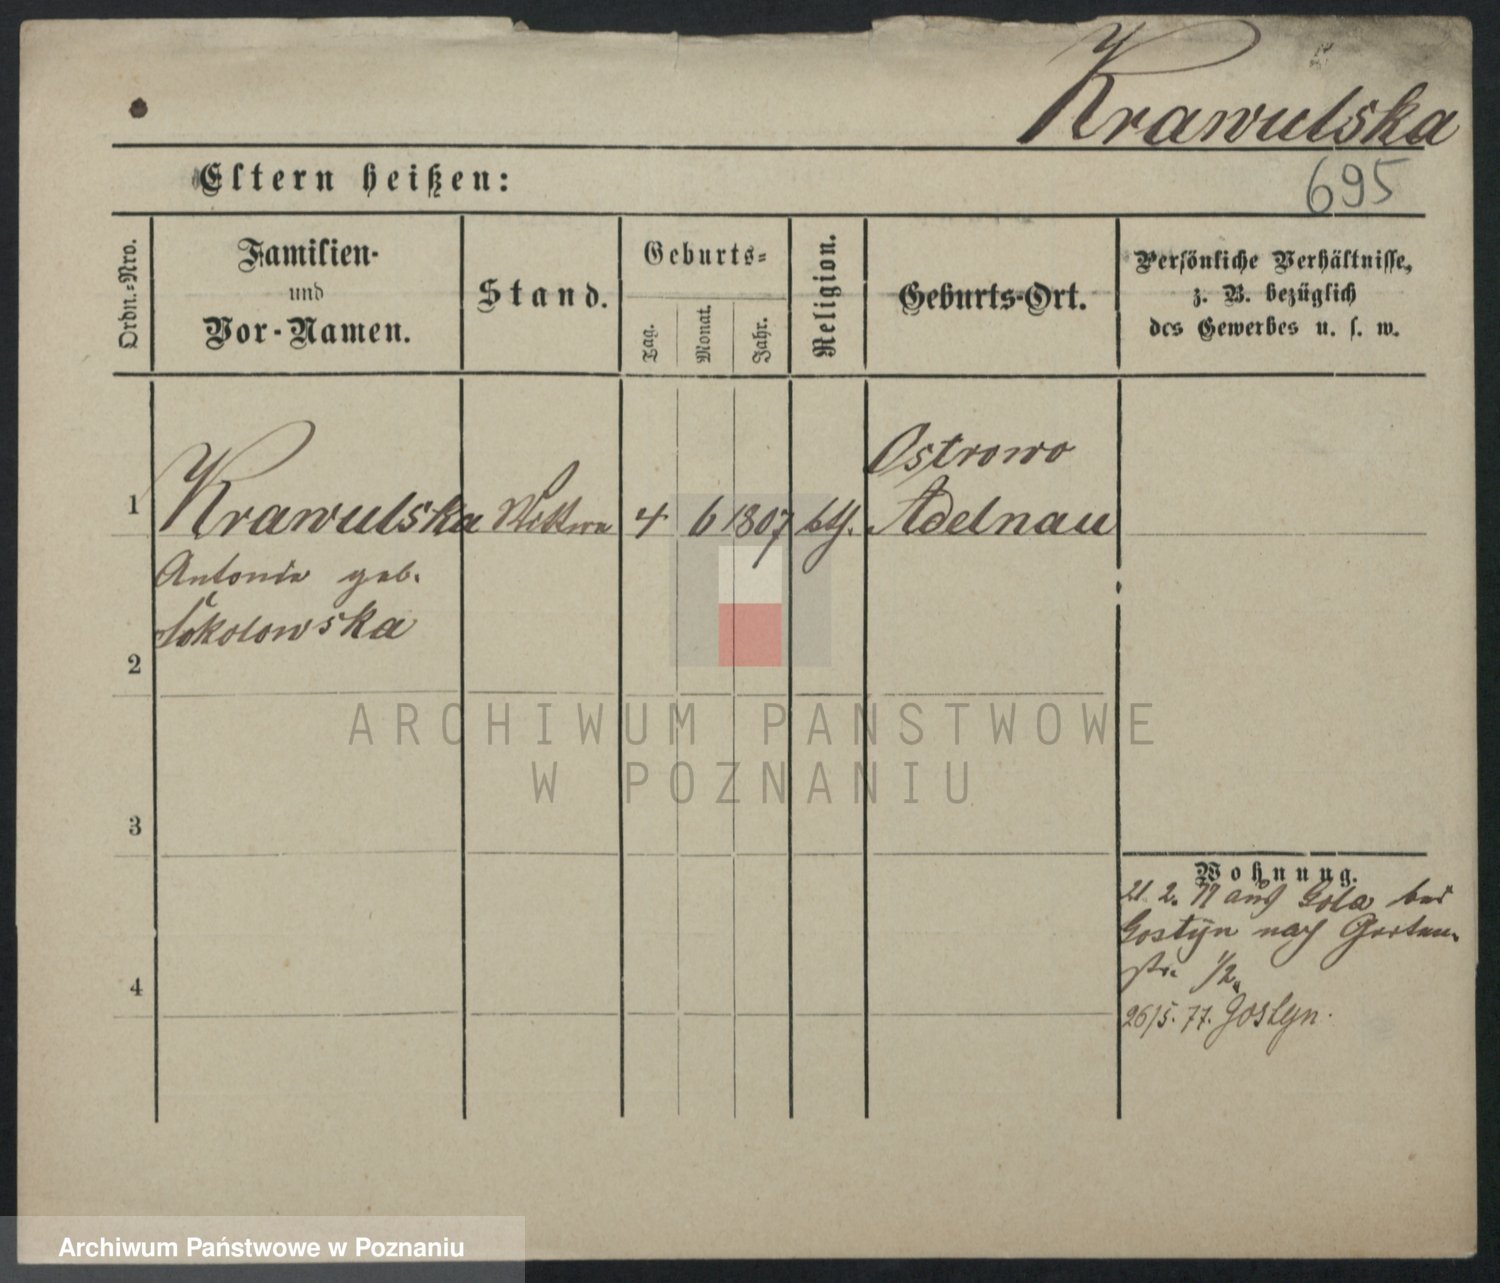 Krawulska
Eltern heißen:
695
Ordn.-Nro.
Familien-
und
Vor-Namen.
Stand.
Geburts-
Tag.
Monat.
Jahr.
Religion.
Geburts-Ort.
Persönliche Verhältnisse,
z. B. bezüglich
des Gewerbes u. s. w.
Ostrowo
1 Krawulska Wittwe 4 6 1807 kth. Adelnau
Antonie geb.
Sokolowska
2
3
4
Wohnung.
21. 2. 77 aus Gola bei
Gostyn nach Garten-
str. 1/2.
26/5. 77. Gostyn.
ARCHIWUM PAŃSTWOWE
W POZNANIU
Archiwum Państwowe w Poznaniu